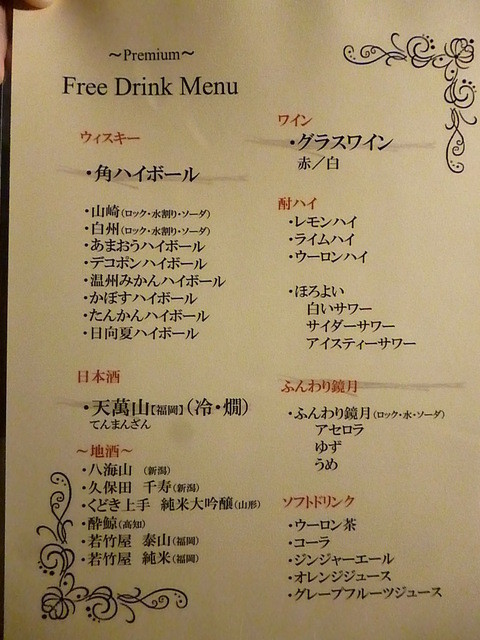 ～Premium～
Free Drink Menu
ウィスキー
・角ハイボール
・山崎(ロック・水割り・ソーダ)
・白州(ロック・水割り・ソーダ)
・あまおうハイボール
・デコポンハイボール
・温州みかんハイボール
・かぼすハイボール
・たんかんハイボール
・日向夏ハイボール
日本酒
・天萬山【福岡】(冷・燗)
てんまんざん
～地酒～
・八海山 (新潟)
・久保田 千寿(新潟)
・くどき上手 純米大吟醸(山形)
・酔鯨(高知)
・若竹屋 泰山(福岡)
・若竹屋 純米(福岡)
ワイン
・グラスワイン
赤／白
酎ハイ
・レモンハイ
・ライムハイ
・ウーロンハイ
・ほろよい
白いサワー
サイダーサワー
アイスティーサワー
ふんわり鏡月
・ふんわり鏡月(ロック・水・ソーダ)
アセロラ
ゆず
うめ
ソフトドリンク
・ウーロン茶
・コーラ
・ジンジャーエール
・オレンジジュース
・グレープフルーツジュース